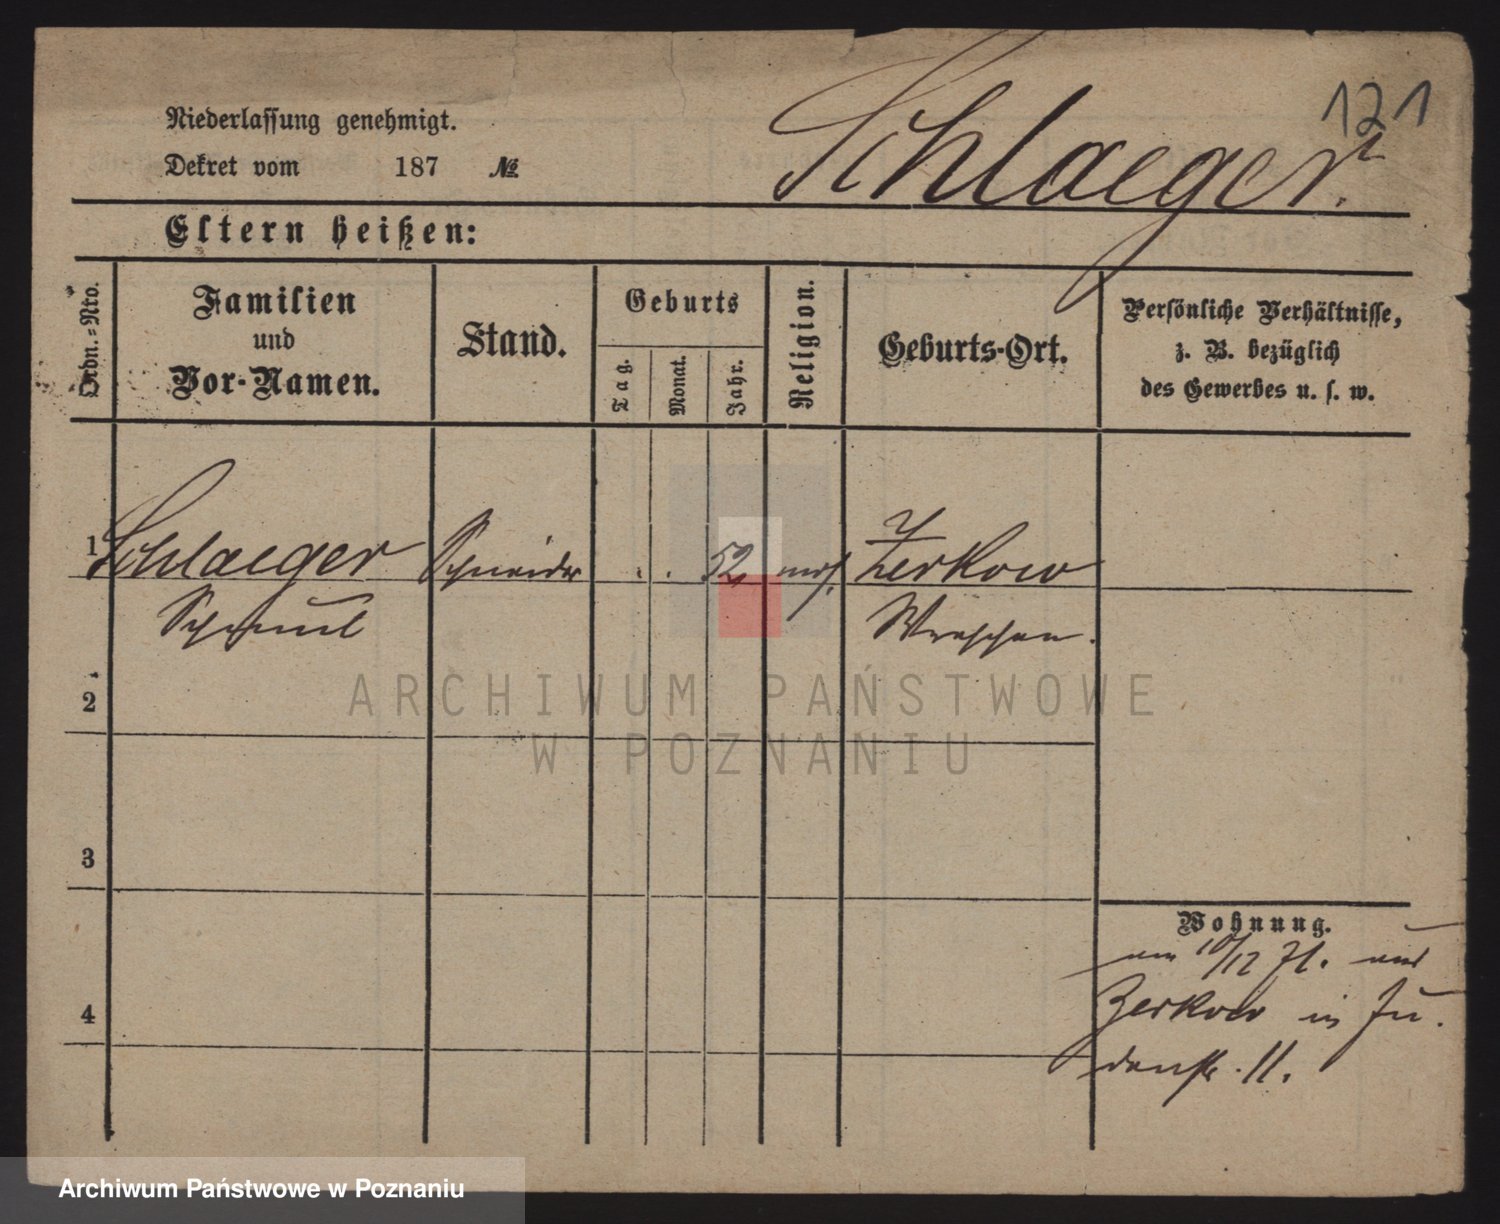 121
Niederlassung genehmigt.
Schlaeger.
Dekret vom 187 №
Eltern heißen:
Ordn.=Nro.
Familien
und
Vor-Namen.
Stand.
Geburts
Tag.
Monat.
Jahr.
Religion.
Geburts-Ort.
Persönliche Verhältnisse,
z. B. bezüglich
des Gewerbes u. s. w.
1 Schlaeger Schneider . . 52 mos. Zerkow
Schmul Wreschen.
2
ARCHIWUM PAŃSTWOWE
W POZNANIU
3
Wohnung.
am 10/12 71. aus
Zerkow in Ju.
denstr. 11.
4
Archiwum Państwowe w Poznaniu